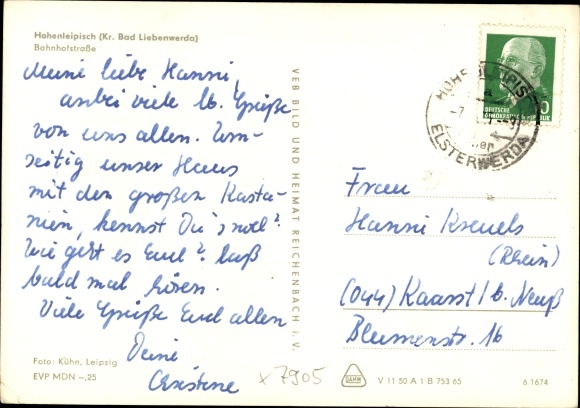 Hohenleipisch (Kr. Bad Liebenwerda)
Bahnhofstraße
Meine liebe Hanni,
anbei viele lb. Grüße
von uns allen. Um-
seitig unser Haus
mit den großen Kasta-
nien, kennst Du's noch?
Wie geht es Euch? Laß
bald mal hören.
Viele Grüße Euch allen
Deine
Christene
Foto: Kühn, Leipzig
EVP MDN –,25
x 7905
VEB BILD UND HEIMAT REICHENBACH i. V.
DEUTSCHE
DEMOKRATISCHE REPUBLIK
ELSTERWERDA
Frau
Hanni Kreuels
(Rhein)
(044) Kaarst / b. Neuß
Blumenstr. 16
V 11 50 A 1 B 753 65
6 1674